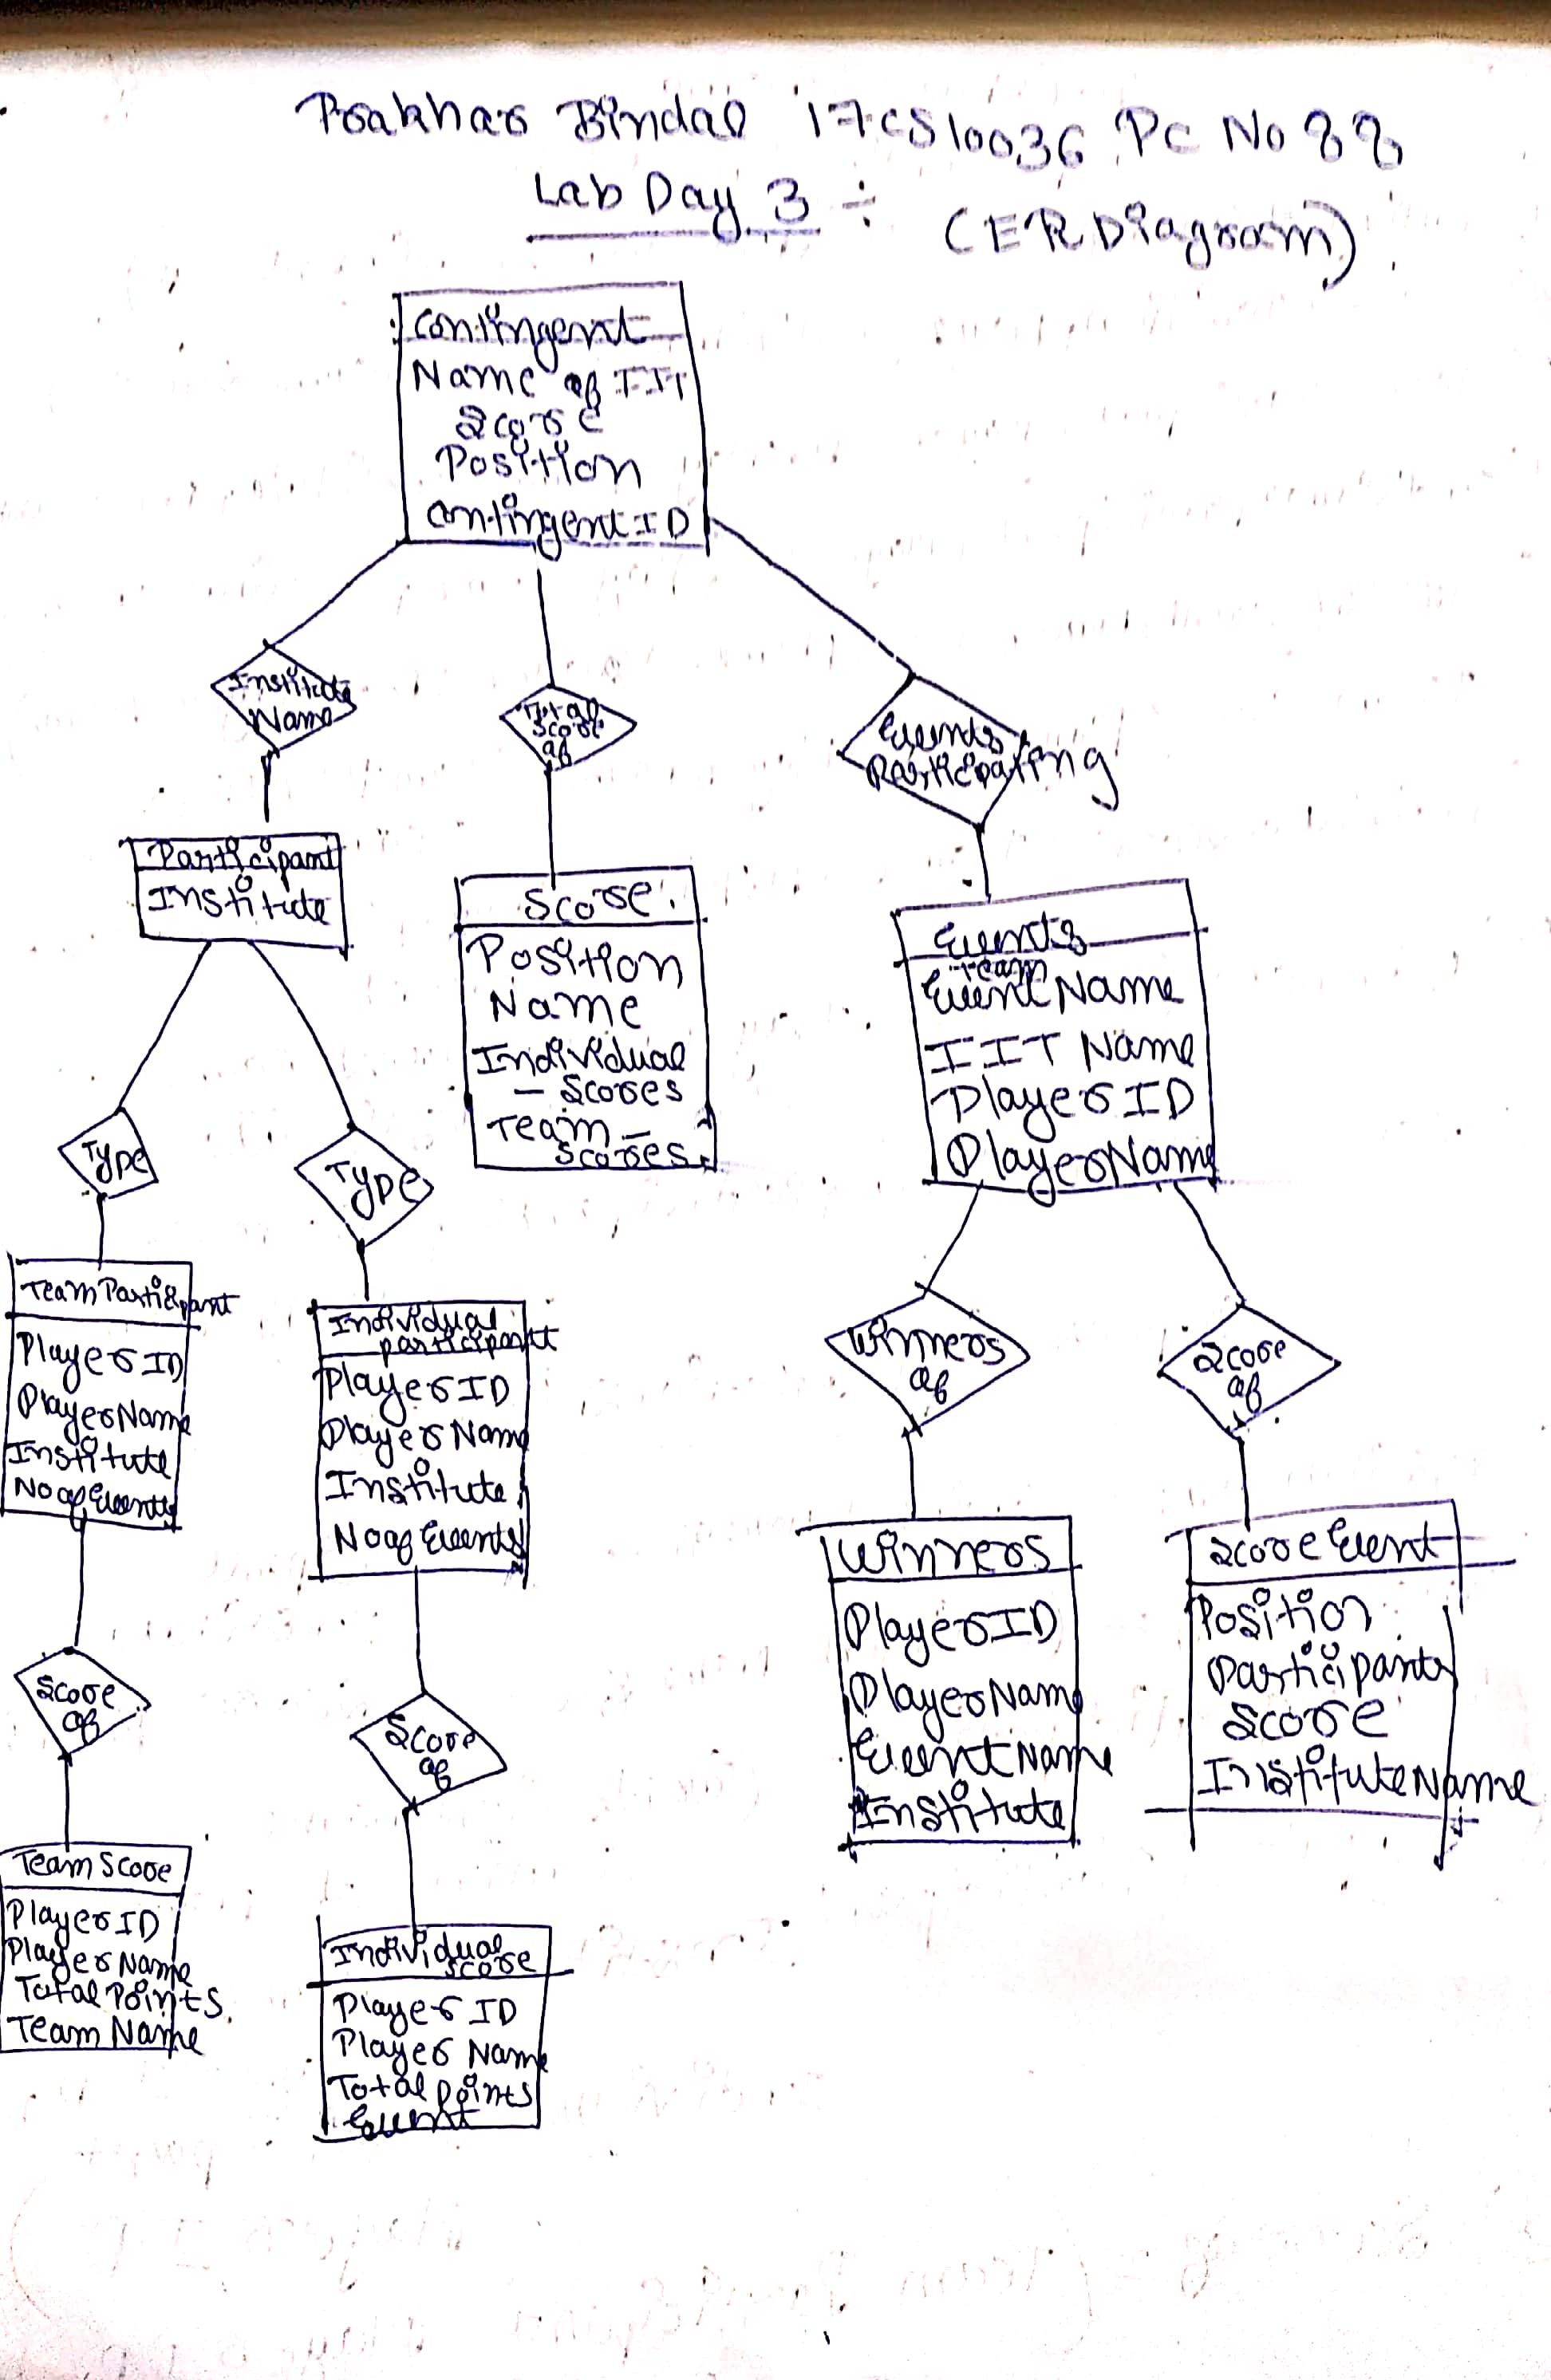 Prakhar Bindal 17CS10036 PC No 88
Lab Day 3 :-
(ER Diagram)
Contingent
Name of IIT
Score
Position
Contingent ID
Institute
Name
Total
Score
of
Events
Participating
Participant
Institute
Score
Position
Name
Individual
- Scores
Team -
Scores
Events
Team
EventName
IIT Name
Player ID
PlayerName
Type
Type
TeamParticipant
Player ID
PlayerName
Institute
No of Events
Individual
participant
Player ID
Player Name
Institute
No of Events
Winners
of
Score
of
Score
of
Score
of
Winners
Player ID
PlayerName
EventName
Institute
Score Event
Position
Participants
Score
InstituteName
Team Score
Player ID
Player Name
Total Points
Team Name
Individual
Score
Player ID
Player Name
Total Points
Event